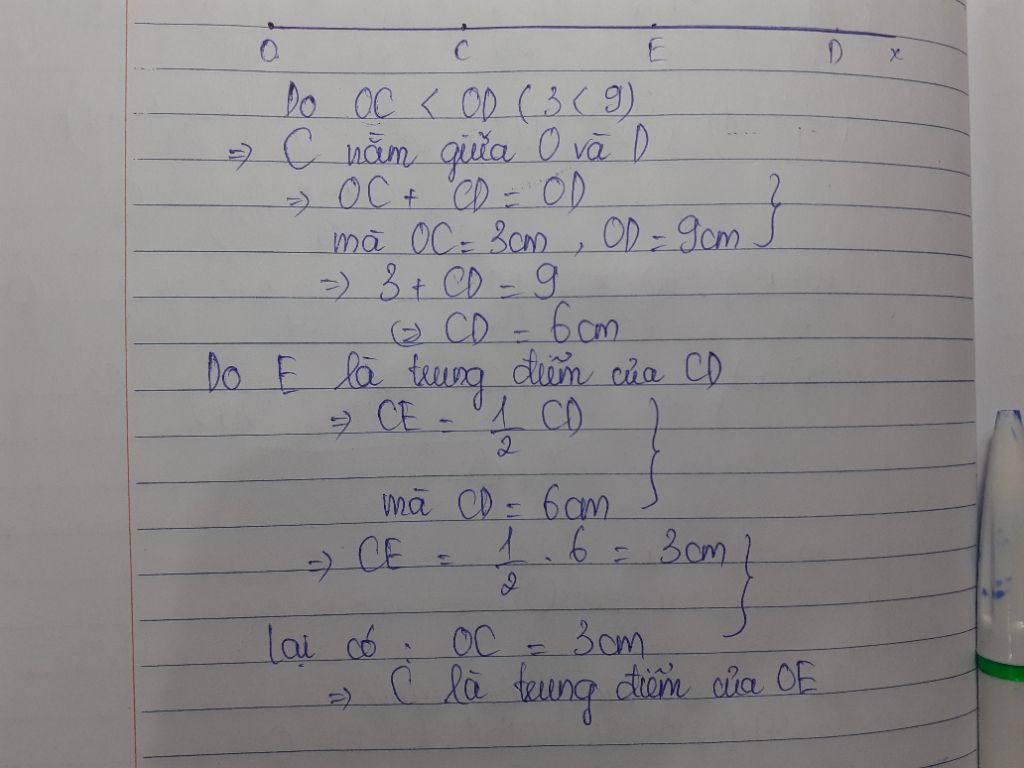 O C E D x
Do OC < OD ( 3 < 9)
=> C nằm giữa O và D
=> OC + CD = OD
mà OC = 3cm , OD = 9cm
=> 3 + CD = 9
<=> CD = 6cm
Do E là trung điểm của CD
=> CE = 1/2 CD
mà CD = 6cm
=> CE = 1/2 . 6 = 3cm
lại có : OC = 3cm
=> C là trung điểm của OE